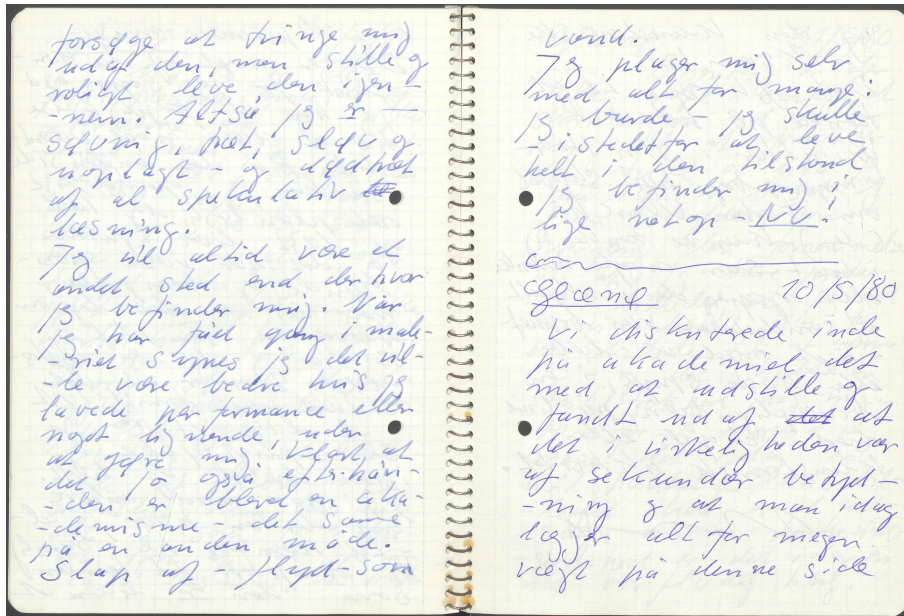 forsøge at tvinge mig
ud af den, men stille og
roligt leve den igen-
-nem. Altså jeg er -
søvning, træt, sløv og
uoplagt - og dødtræt
af al spekulativ
læsning.
Jeg vil altid være et
andet sted end der hvor
jeg befinder mig. Når
jeg har fået gang i male-
-riet synes jeg det vil-
-le være bedre hvis jeg
lavede performance eller
noget lignende, uden
at gøre mig klart at
det jo også efterhån-
-den er blevet en aka-
-demisme - det samme
på en anden måde.
Slap af - flyd - som
vand.
Jeg plager mig selv
med alt for mange:
jeg burde - jeg skulle
- istedetfor at leve
helt i den tilstand
jeg befinder mig i
lige netop - NU!
10/5/80
Vi diskuterede inde
på akademiet det
med at udstille og
fandt ud af det at
det i virkeligheden var
af sekundær betyd-
-ning og at man idag
lægger alt for megen
vægt på denne side